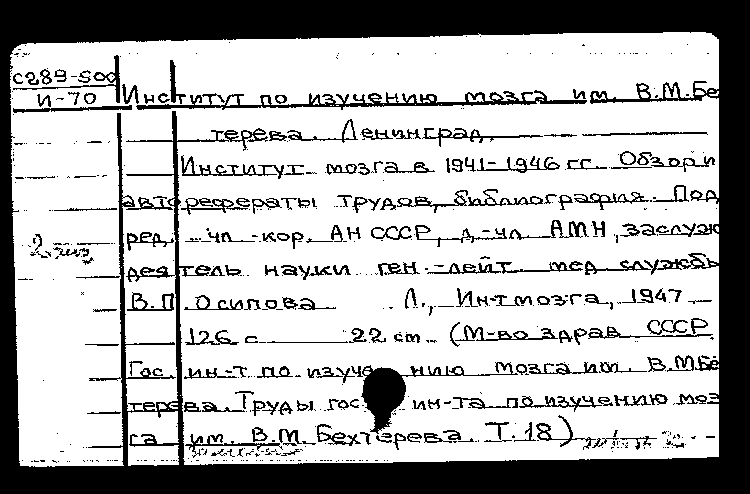 С289-500
И-70
Институт по изучению мозга им. В.М.Бе
терева. Ленинград.
Институт мозга в 1941-1946 гг. Обзор и
авторефераты трудов, библиография. Под
ред. чл-кор. АН СССР, д.-чл АМН, заслуж
2 экз
деятель науки ген.-лейт. мед службы
В.П.Осипова Л., Ин-т мозга, 1947
126 с 22 см. (М-во здрав СССР.
Гос. ин-т по изучению мозга им. В.М.Бе
терева. Труды гос ин-та по изучению моз
га им. В.М. Бехтерева. Т. 18)